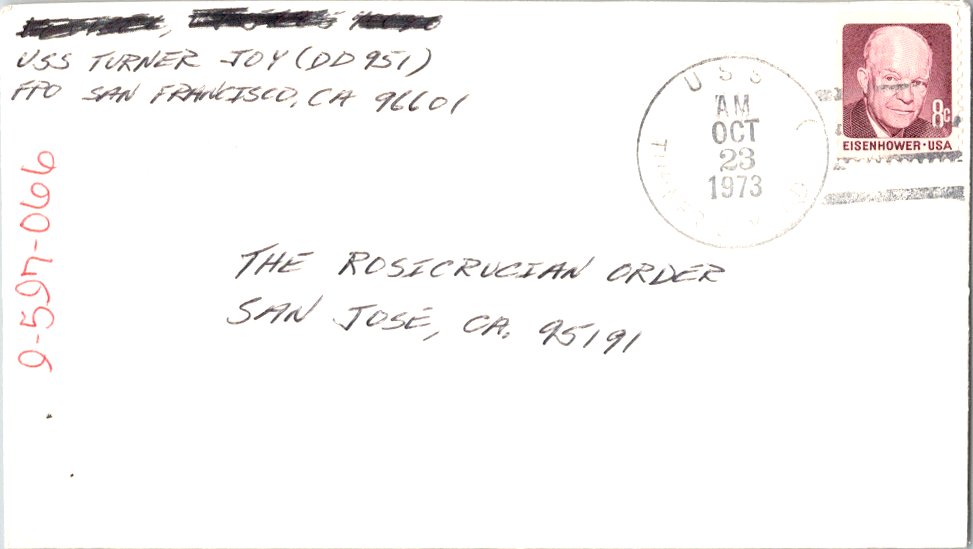 USS TURNER JOY (DD 951)
FPO SAN FRANCISCO, CA 96601
USS
AM
OCT
23
1973
8c
EISENHOWER·USA
9-597-066
THE ROSICRUCIAN ORDER
SAN JOSE, CA. 95191